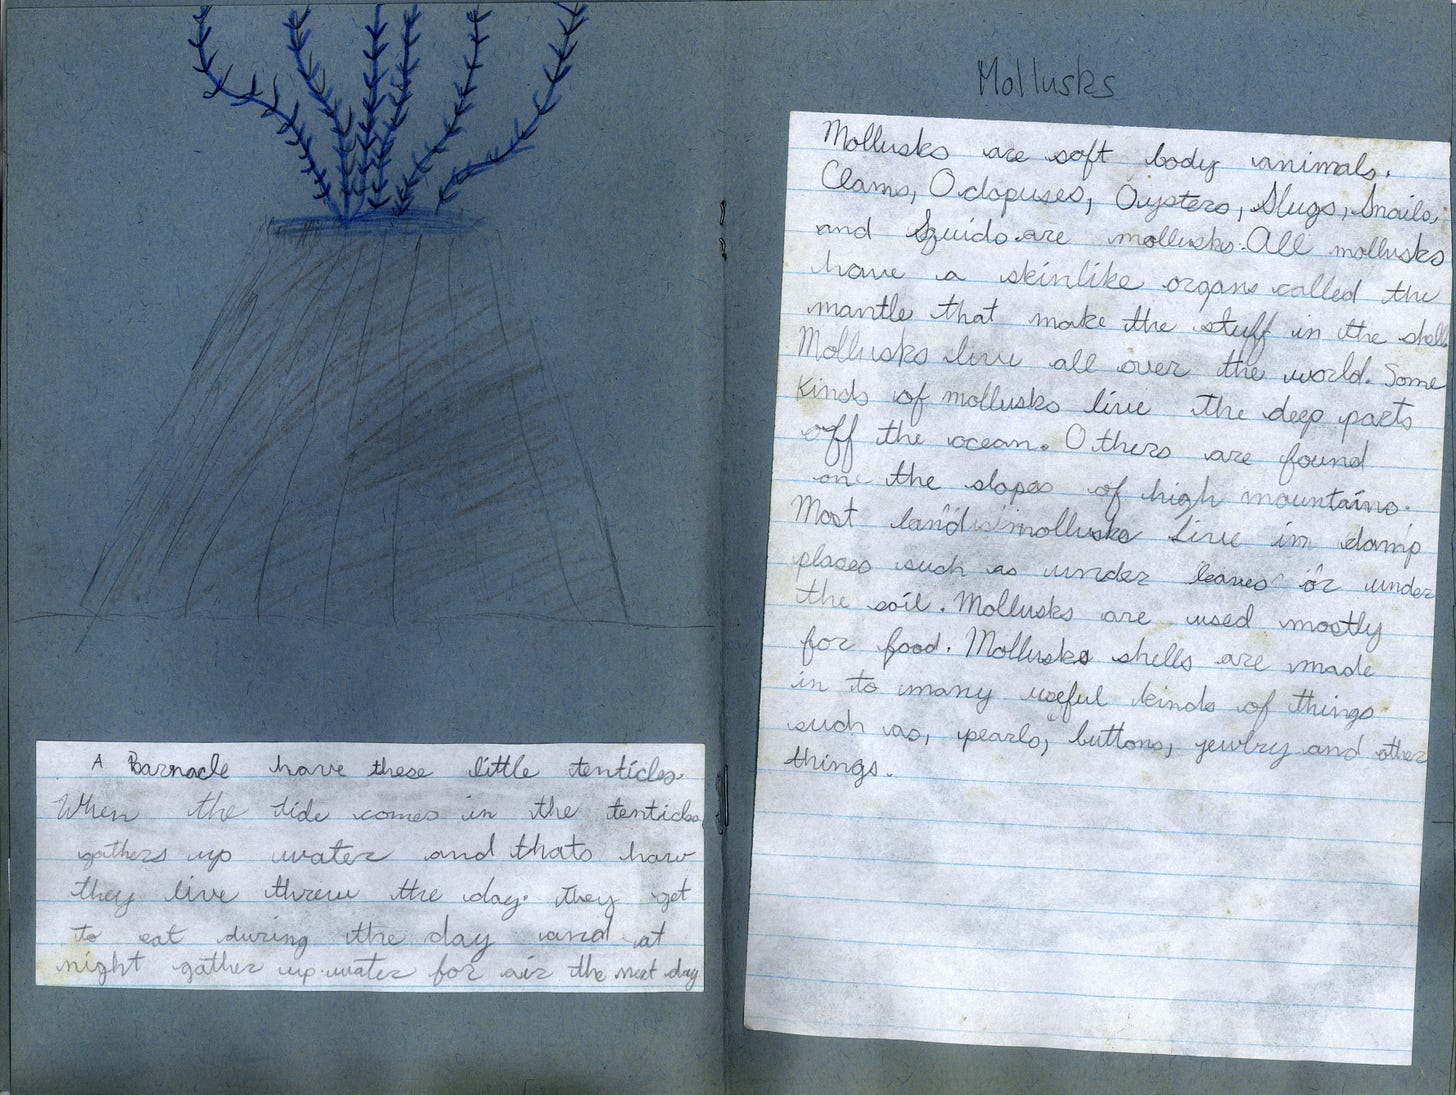 A Barnacle have these little tenticles.
When the tide comes in the tenticles
gathers up water and thats how
they live threw the day. They get
to eat during the day and at
night gather up water for air the next day
Mollusks
Mollusks are soft body animals.
Clams, Octopuses, Oysters, Slugs, Snails,
and Squids are mollusks. All mollusks
have a skinlike organs called the
mantle that make the stuff in the shell
Mollusks live all over the world. Some
kinds of mollusks live the deep parts
off the ocean. Others are found
on the slopes of high mountains.
Most land mollusks live in damp
places such as under leaves or under
the soil. Mollusks are used mostly
for food. Mollusks shells are made
in to many useful kinds of things
such as, pearls, buttons, jewlry and other
things.